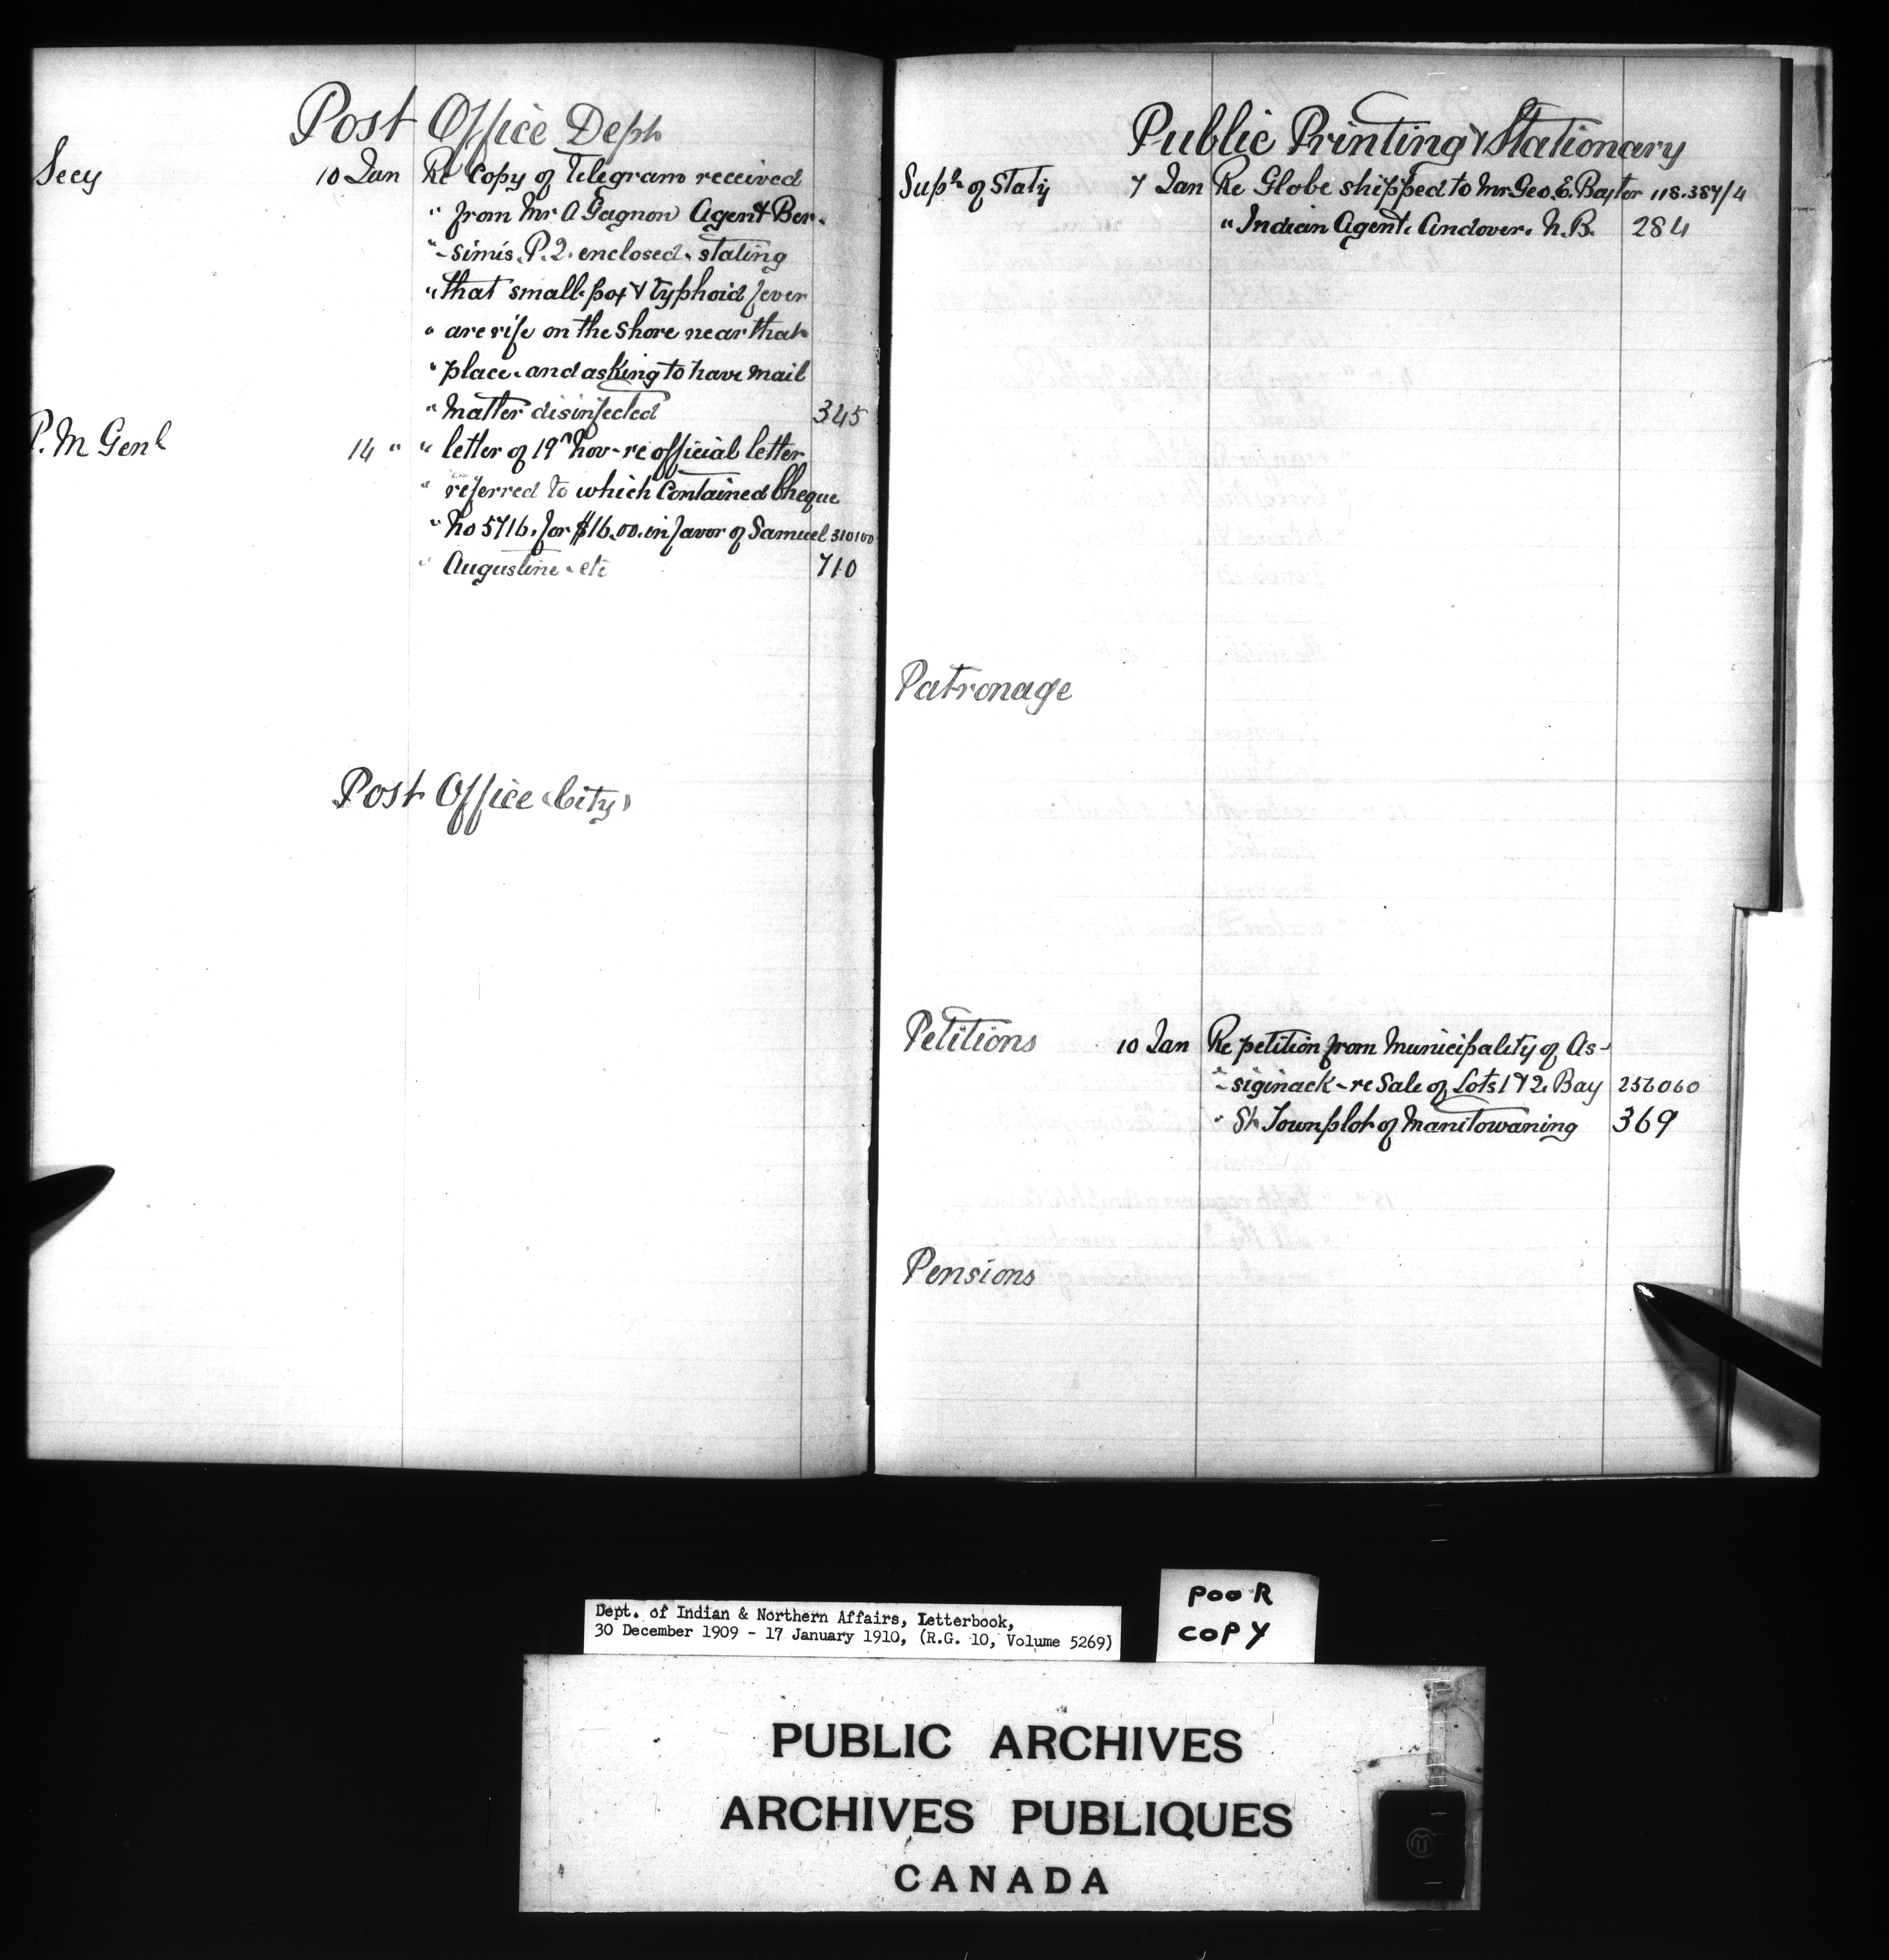 Post Office Dept
Secy 10 Jan Re Copy of Telegram received
" from Mr A Gagnon Agent Ber-
"-simis. P.Q. enclosed. stating
" that small-pox & typhoid fever
" are rife on the shore near that
" place. and asking to have mail
" matter disinfected 345
P. M Genl 14 " " letter of 19th Nov - re official letter
" referred to which contained Cheque
" No 5716. for $16.00. in favor of Samuel 310100
" Augustine - etc 710
Post Office (City)
Public Printing & Stationary
Supt of Staty 7 Jan Re Globe shipped to Mr Geo. E. Baxter 118.387/4
" Indian Agent. Andover. N.B. 284
Patronage
Petitions 10 Jan Re petition from Municipality of As-
"-siginack - re Sale of Lots 1 & 2. Bay 256060
" St Townplot of Manitowaning 369
Pensions
Dept. of Indian & Northern Affairs, Letterbook,
30 December 1909 - 17 January 1910, (R.G. 10, Volume 5269)
POOR
COPY
PUBLIC ARCHIVES
ARCHIVES PUBLIQUES
CANADA